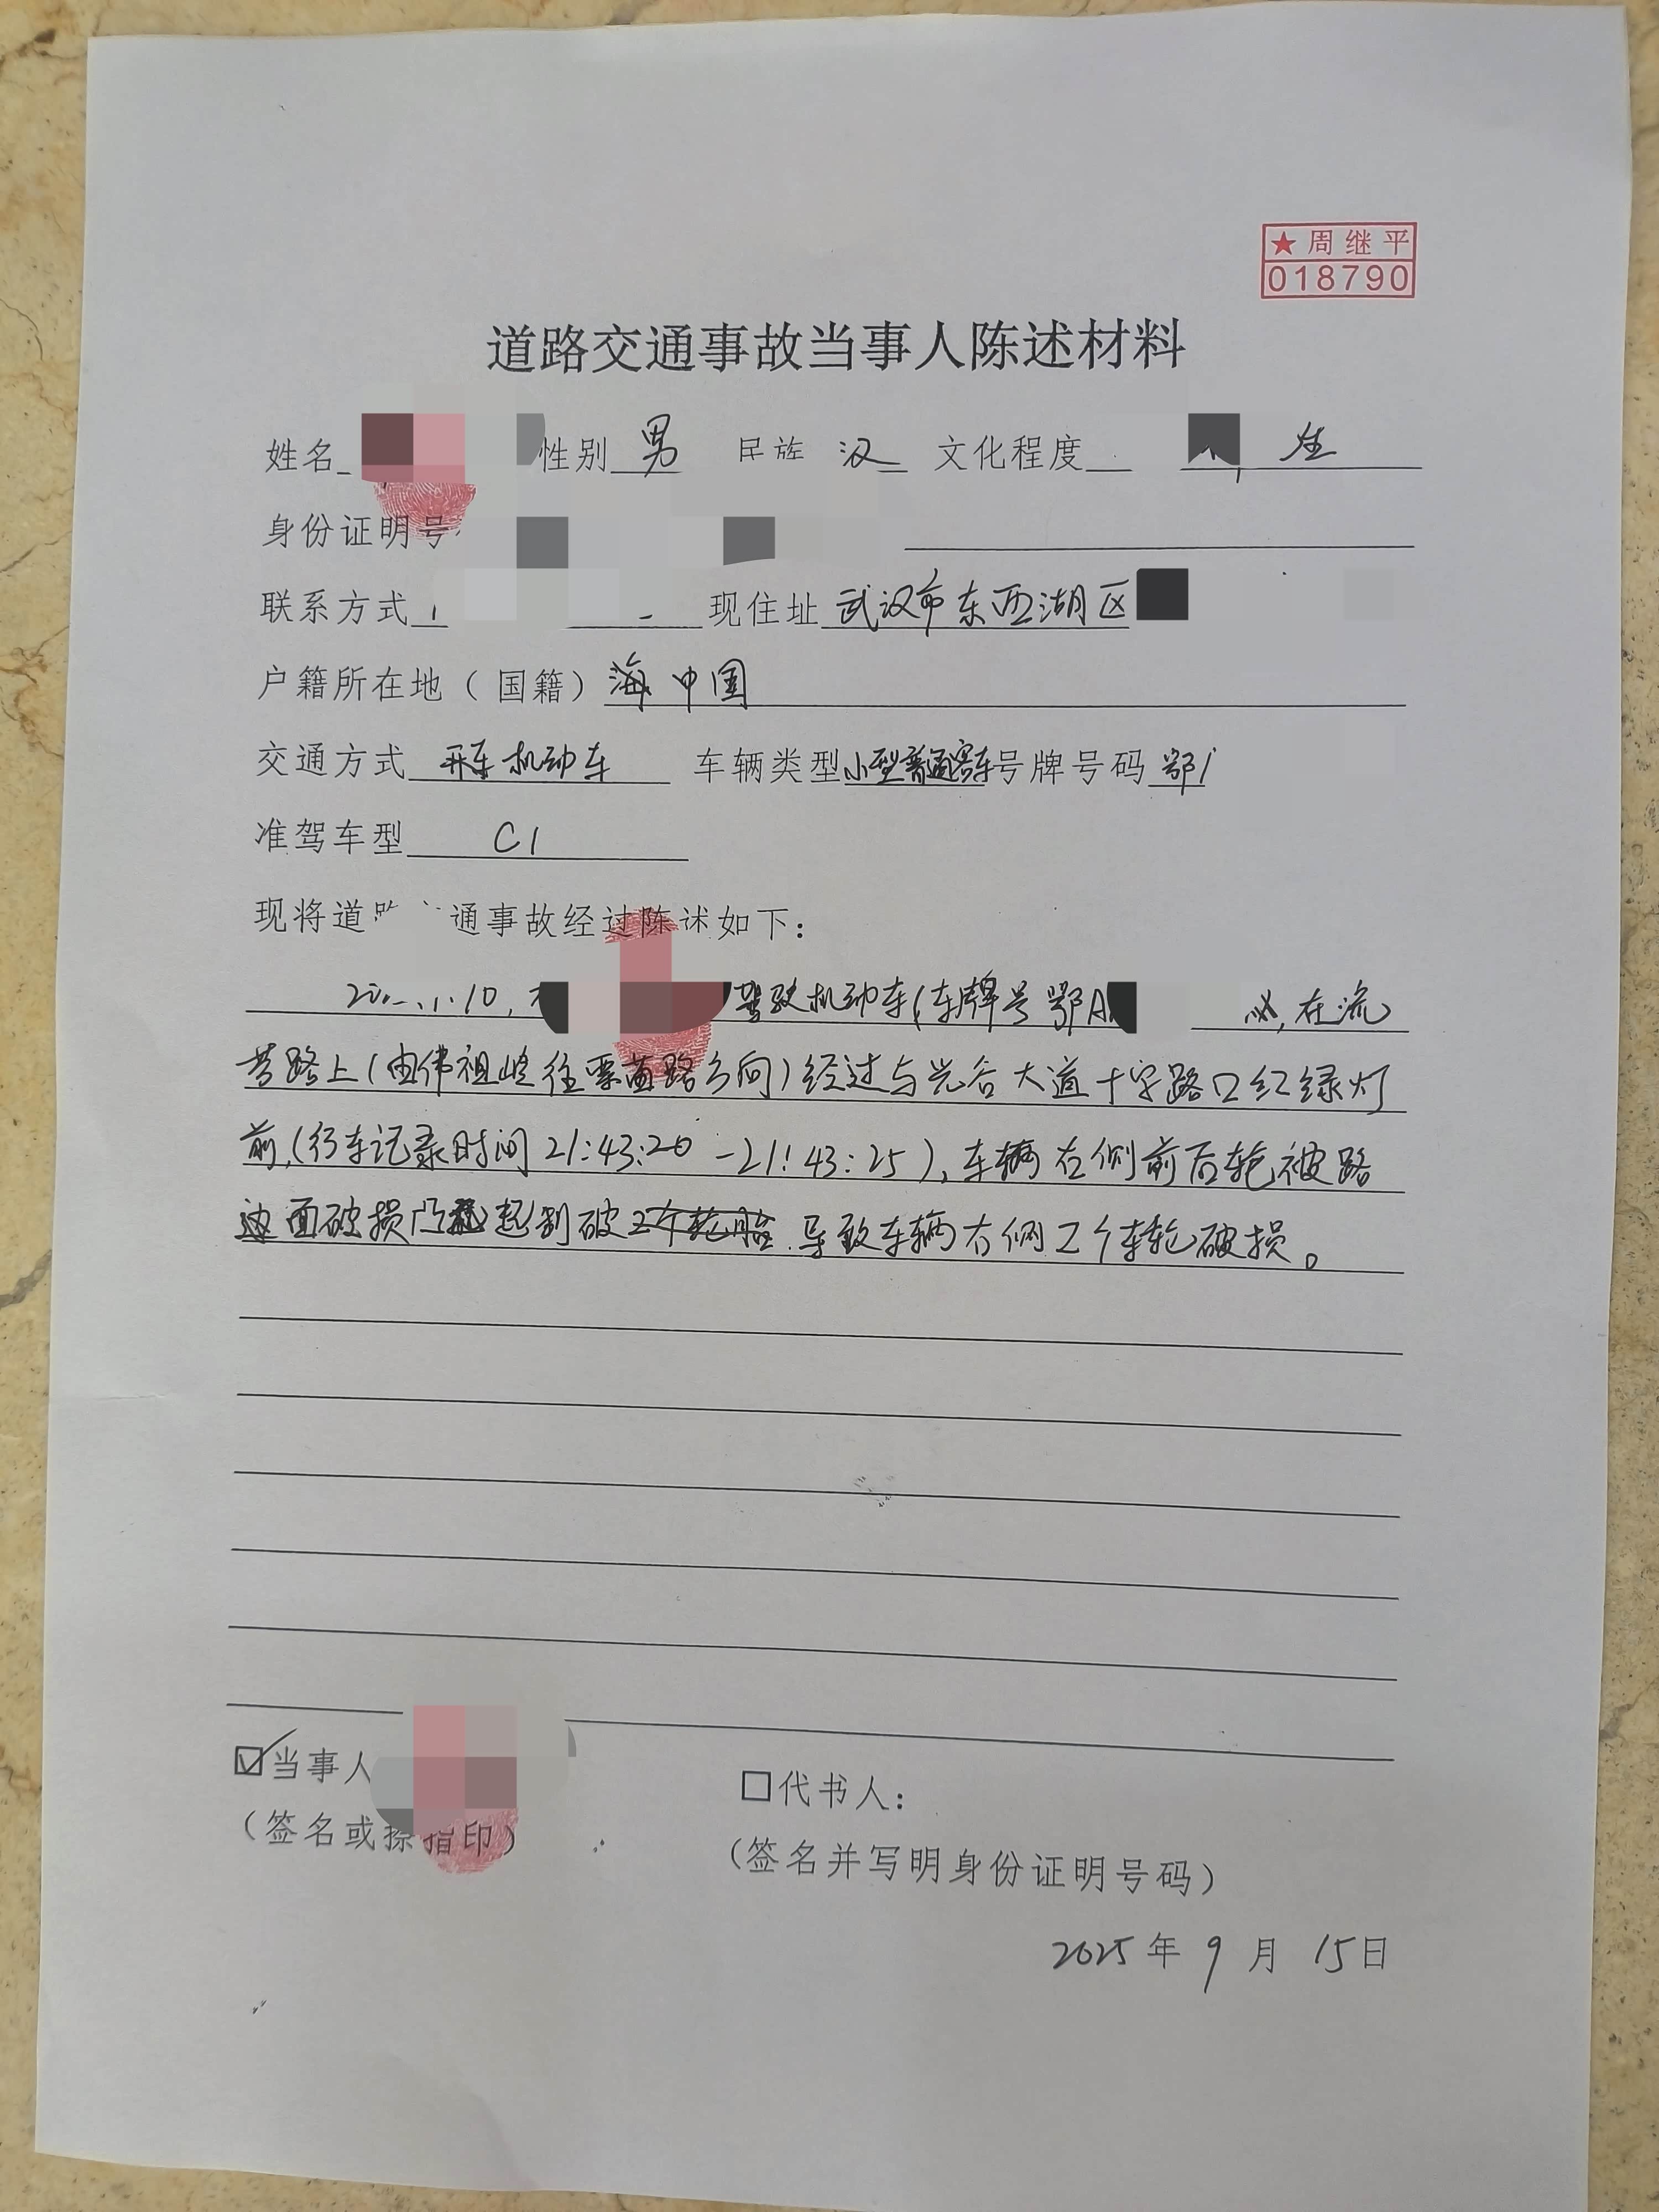 ★周继平
018790
道路交通事故当事人陈述材料
姓名 性别 男 民族 汉 文化程度 生
身份证明号
联系方式 现住址 武汉市东西湖区
户籍所在地（国籍）海 中国
交通方式 开车 机动车 车辆类型 小型普通客车 号牌号码 鄂
准驾车型 C1
现将道路 通事故经过陈述如下：
10, 驾驶机动车(车牌号鄂A ,在流
芳路上(由佛祖岭往栗庙路方向)经过与光谷大道十字路口红绿灯
前,(行车记录时间21:43:20-21:43:25),车辆右侧前后轮被路
面破损凸起割破2个轮胎.导致车辆右侧2个车轮破损。
☑当事人
（签名或捺指印）
□代书人：
（签名并写明身份证明号码）
2025年9月15日